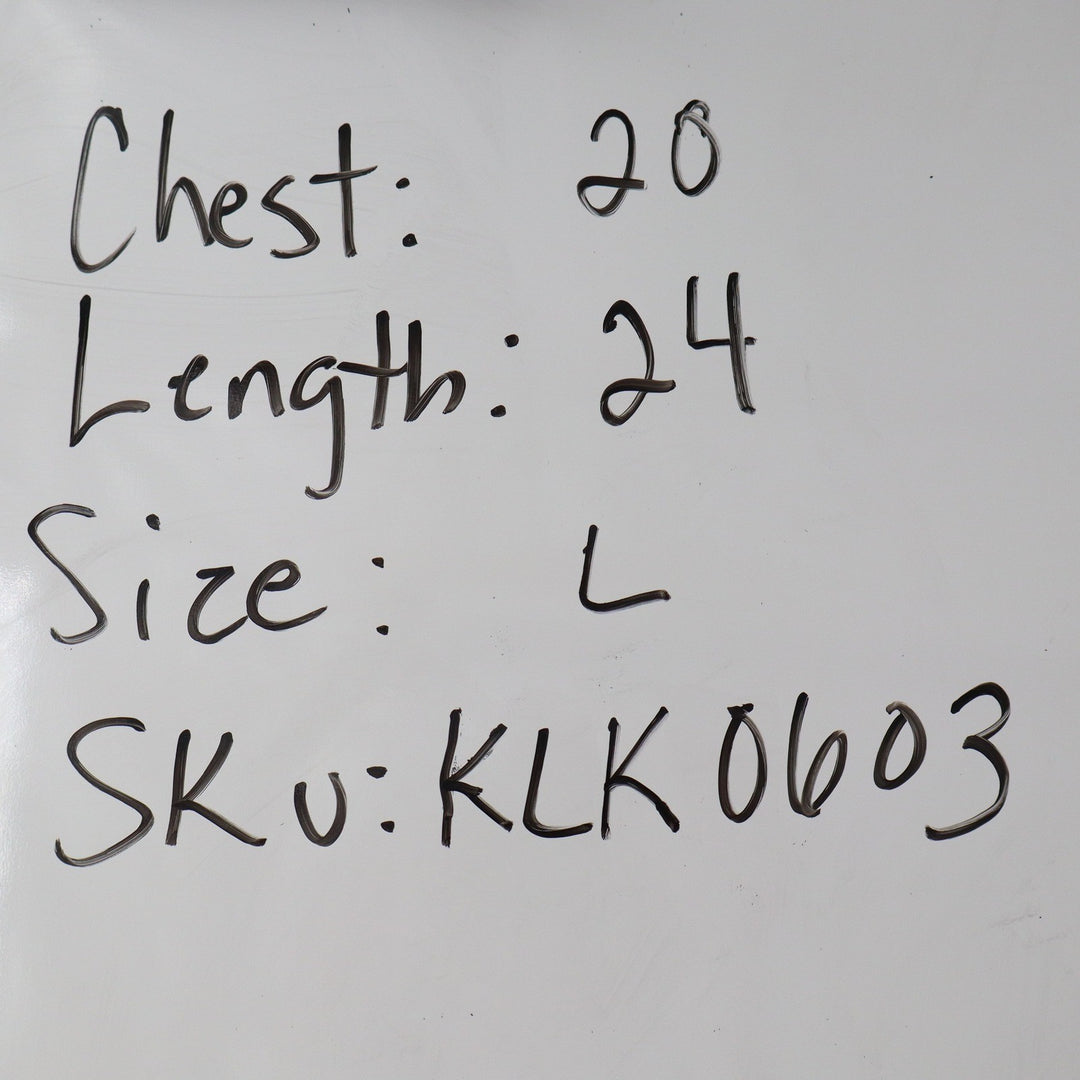 Chest: 20
Length: 24
Size: L
SKU: KLK0603